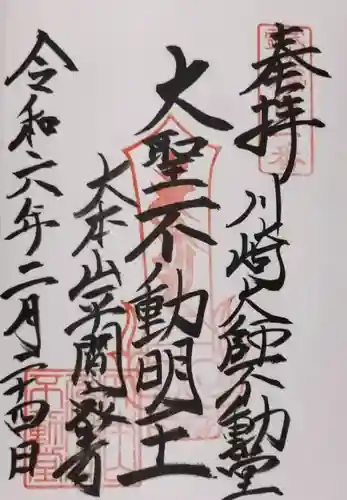 奉拝
川崎大師不動堂
大聖不動明王
大本山平間寺
令和六年二月二十四日
不動堂